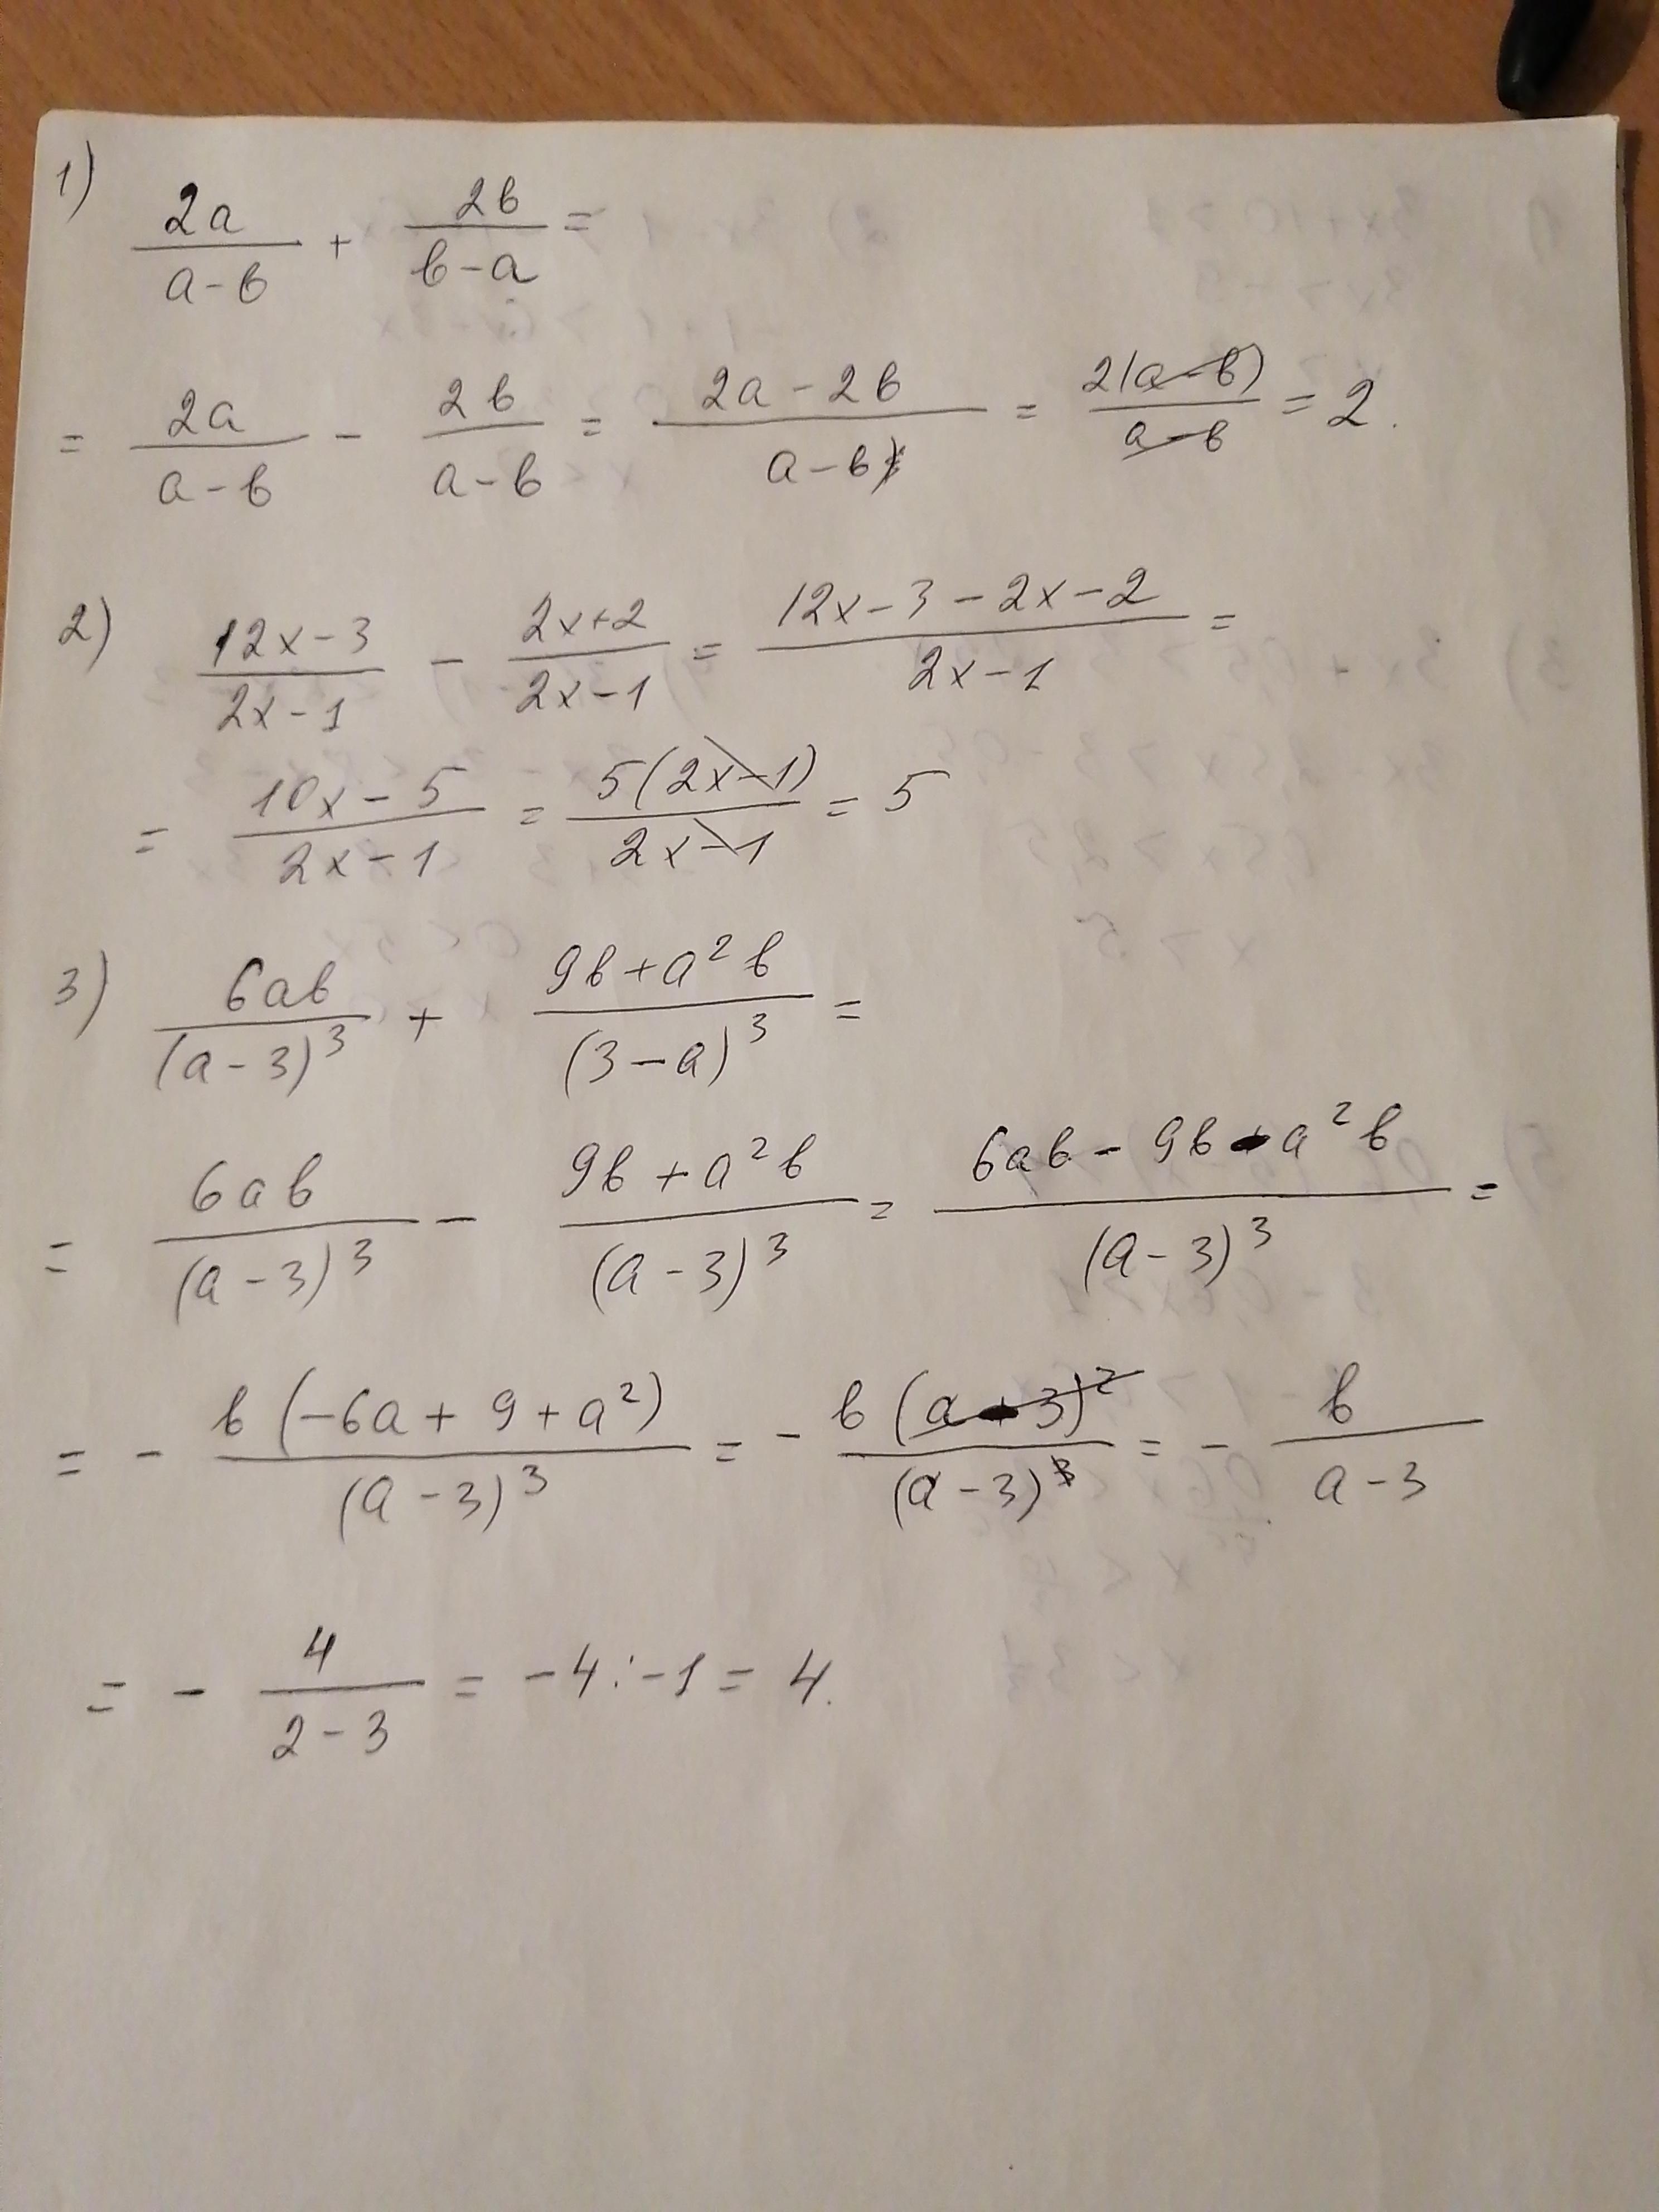 1) 2a/(a-b) + 2b/(b-a) =
= 2a/(a-b) - 2b/(a-b) = (2a-2b)/(a-b) = 2(a-b)/(a-b) = 2.
2) (12x-3)/(2x-1) - (2x+2)/(2x-1) = (12x-3-2x-2)/(2x-1) =
= (10x-5)/(2x-1) = 5(2x-1)/(2x-1) = 5
3) 6ab/(a-3)³ + (9b+a²b)/(3-a)³ =
= 6ab/(a-3)³ - (9b+a²b)/(a-3)³ = (6ab-9b-a²b)/(a-3)³ =
= - b(-6a+9+a²)/(a-3)³ = - b(a-3)²/(a-3)³ = - b/(a-3)
= - 4/(2-3) = -4:-1 = 4.